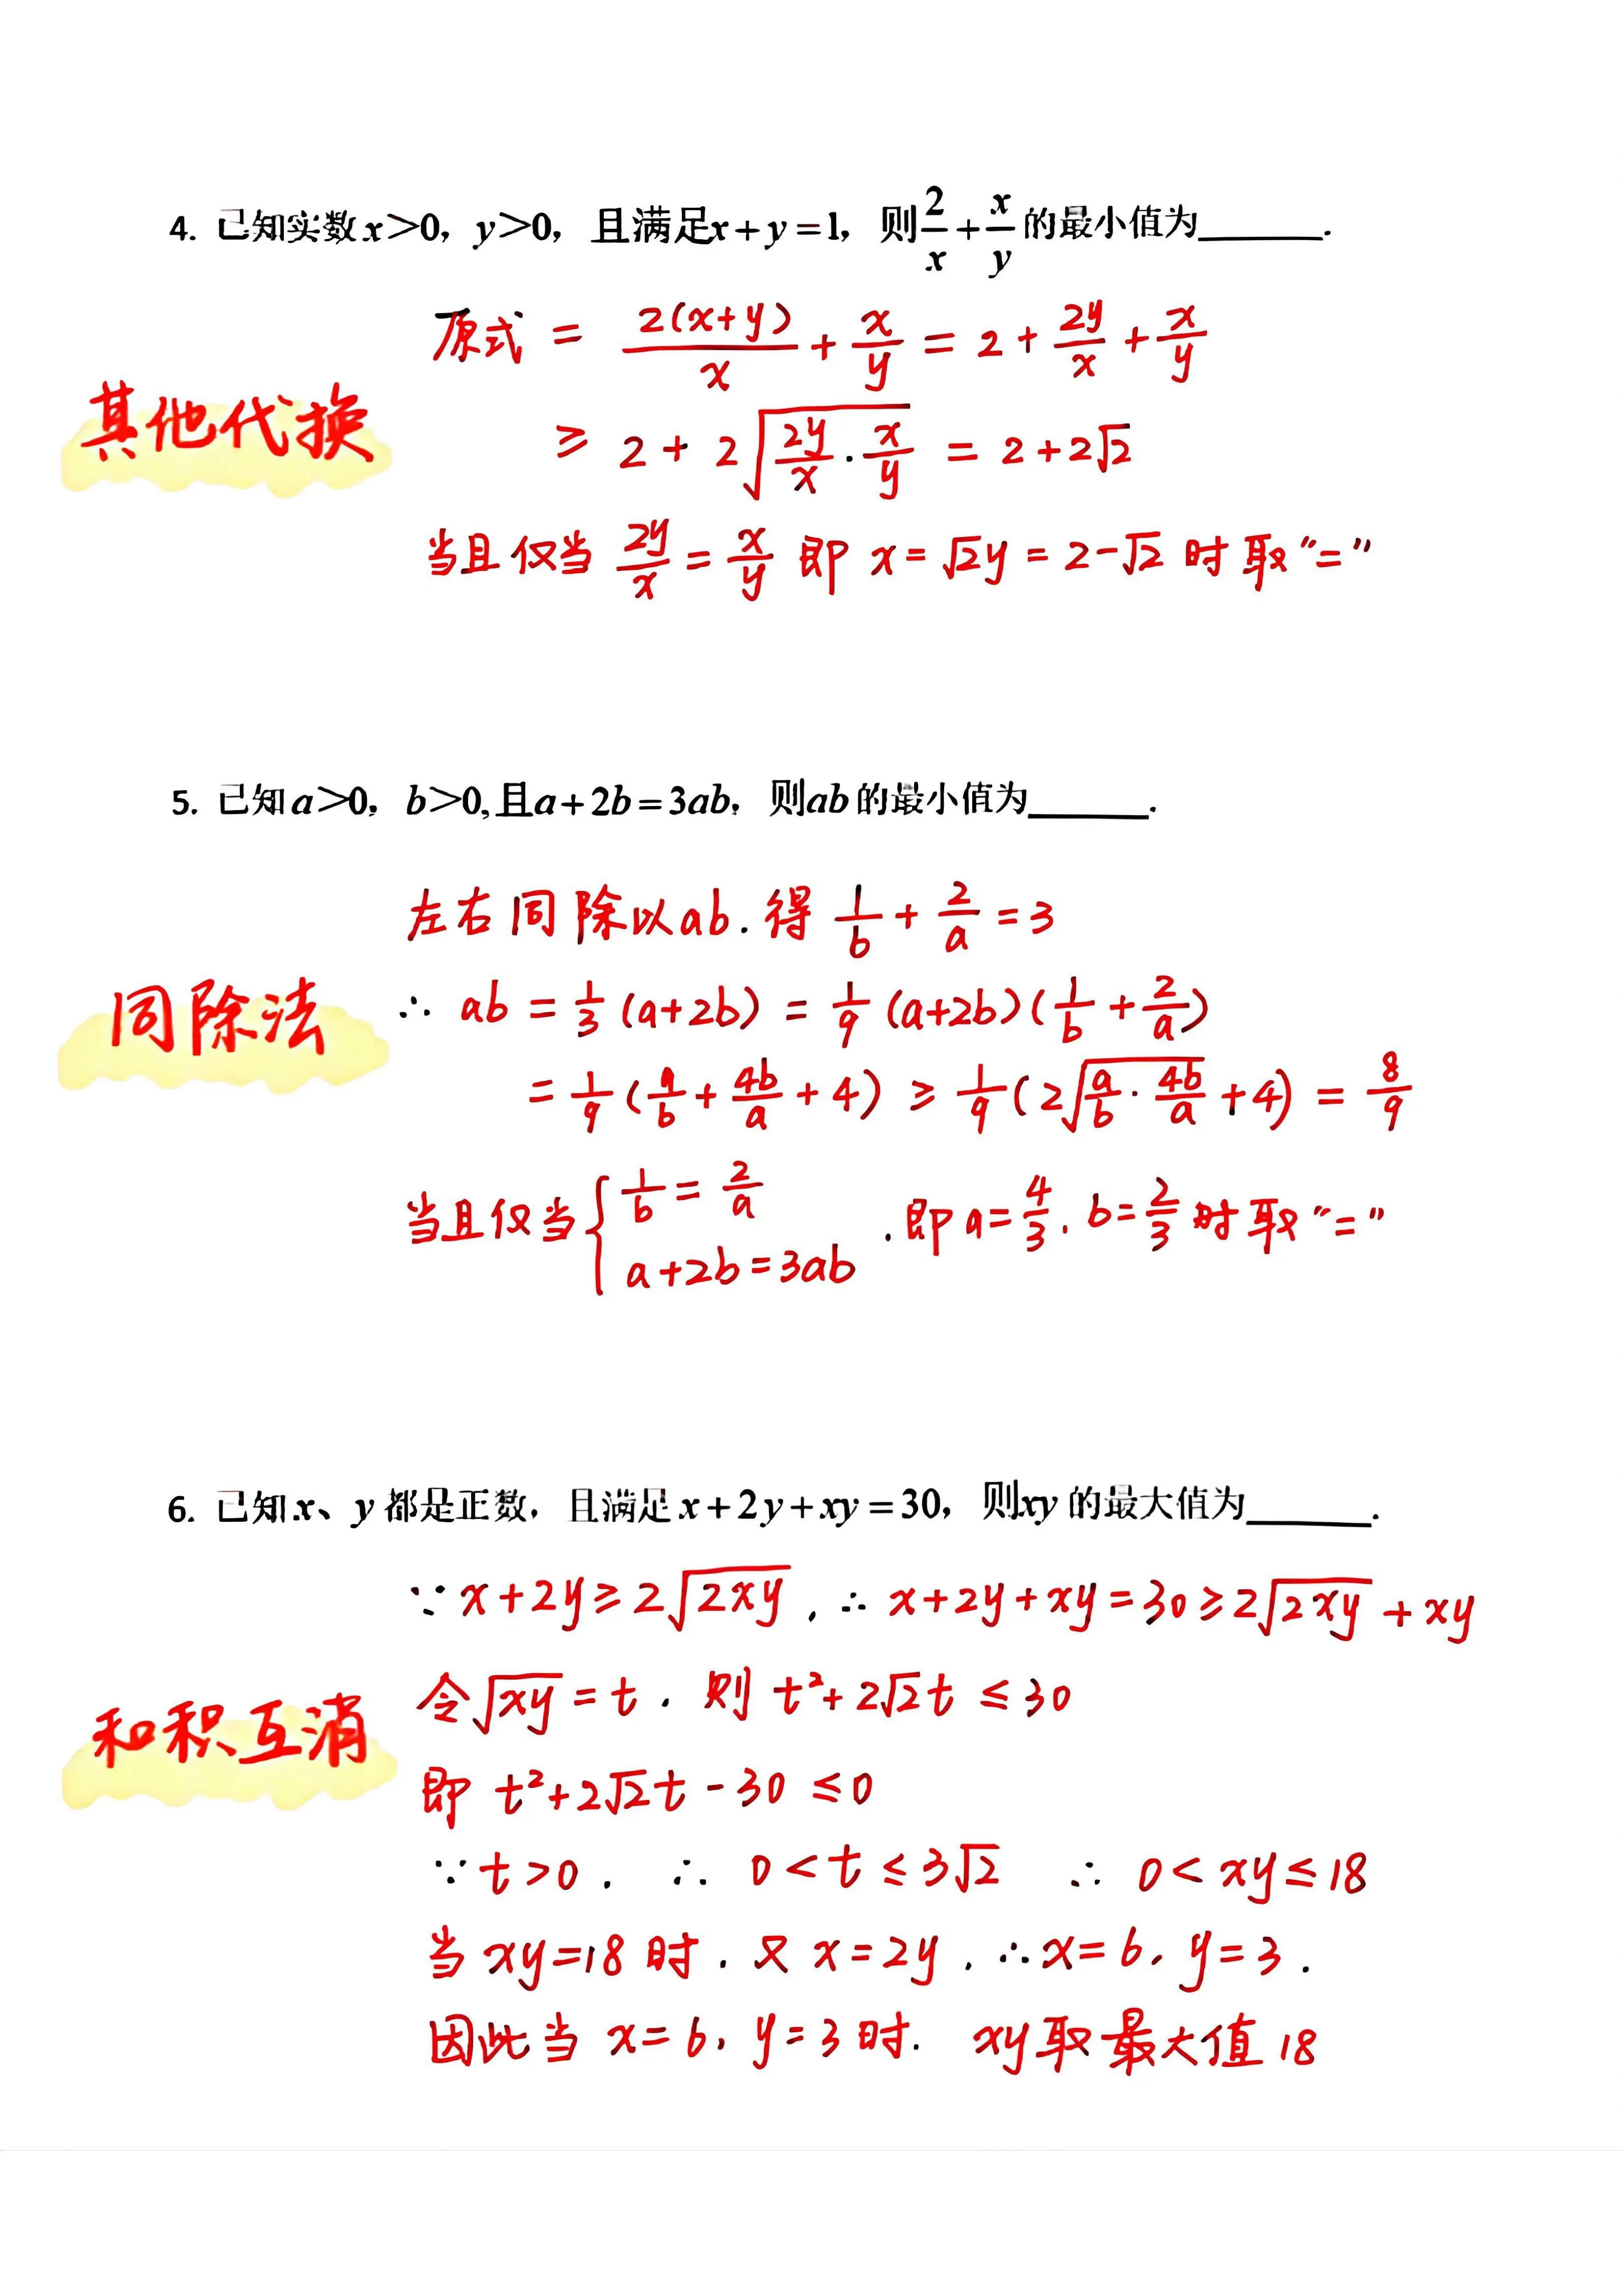 4. 已知实数 x>0，y>0，且满足x+y=1，则2/x+x/y的最小值为______.
原式 = 2(x+y)/x + x/y = 2 + 2y/x + x/y
其他代换
≥ 2 + 2√(2y/x · x/y) = 2+2√2
当且仅当 2y/x = x/y 即 x=√2y=2-√2 时取"="
5. 已知a>0，b>0,且a+2b=3ab，则ab的最小值为______.
左右同除以ab. 得 1/b + 2/a = 3
同除法
∴ ab = 1/3 (a+2b) = 1/9 (a+2b)(1/b + 2/a)
= 1/9 (a/b + 4b/a + 4) ≥ 1/9 (2√(a/b · 4b/a) + 4) = 8/9
当且仅当 { 1/b = 2/a
a+2b=3ab . 即a=4/3. b=2/3 时取"="
6. 已知x、y都是正数，且满足x+2y+xy=30，则xy的最大值为______.
∵ x+2y≥2√(2xy), ∴ x+2y+xy=30≥2√(2xy)+xy
令√(xy)=t. 则 t²+2√2t ≤30
和积互消
即 t²+2√2t-30 ≤0
∵ t>0. ∴ 0<t≤3√2 ∴ 0<xy≤18
当 xy=18 时. 又 x=2y. ∴x=6, y=3.
因此当 x=6, y=3时. xy取最大值18